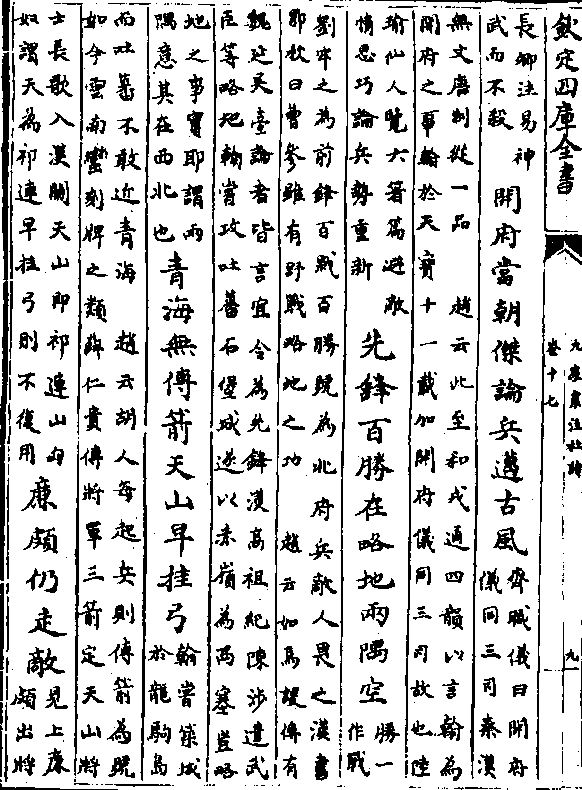 欽定四庫全書
九家集注杜詩
卷十七
九
長卿注易神
武而不殺
開府當朝傑論兵邁古風
齊職儀曰開府
儀同三司秦漢
無文唐制從一品 趙云此至和戎通四韻以言翰為
開府之事翰於天寶十一載加開府儀同三司故也陸
瑜仙人覽六箸篇避敵
情思巧論兵勢重新
先鋒百勝在略地兩隅空
勝一
作戰
劉牢之為前鋒百戰百勝號為北府兵敵人畏之漢書
鄒枚曰曹參雖有野戰略地之功 趙云如馬援傳有
魏延吴臺論者皆言宜令為先鋒漢高祖紀陳涉遣武
臣等略地翰嘗攻吐蕃石堡城遂以赤嶺為西塞豈略
地之事實耶謂兩
隅意其在西北也
青海無傳箭天山早挂弓
翰嘗築城
於龍駒島
而吐蕃不敢近青海 趙云胡人每起兵則傳箭為號
如今雲南蠻刻牌之類薛仁貴傳將軍三箭定天山將
士長歌入漢關天山即祁連山匈
奴謂天為祁連早挂弓則不復用
廉頗仍走敵
見上廉
頗出將